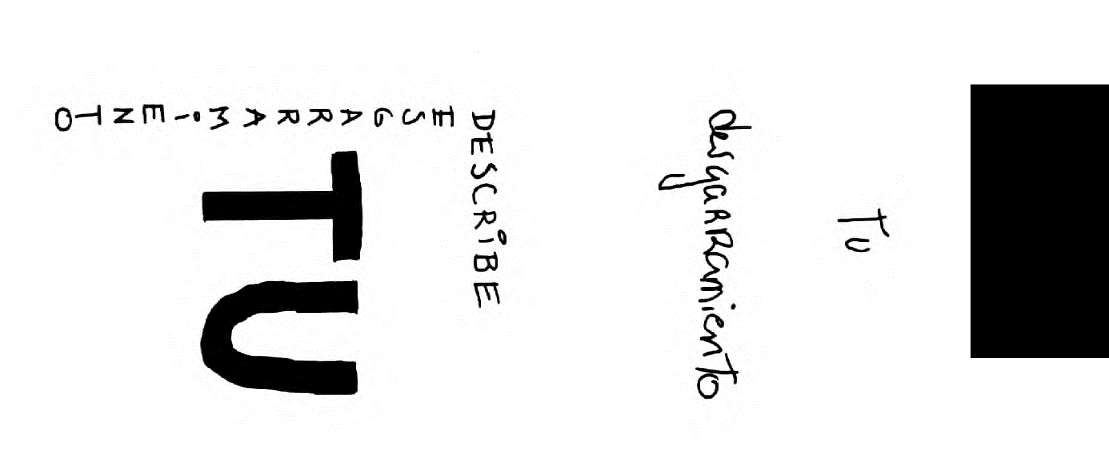 Tu
desgaRRamiento
DESCRiBE
ESGARRAMiENTO
TU